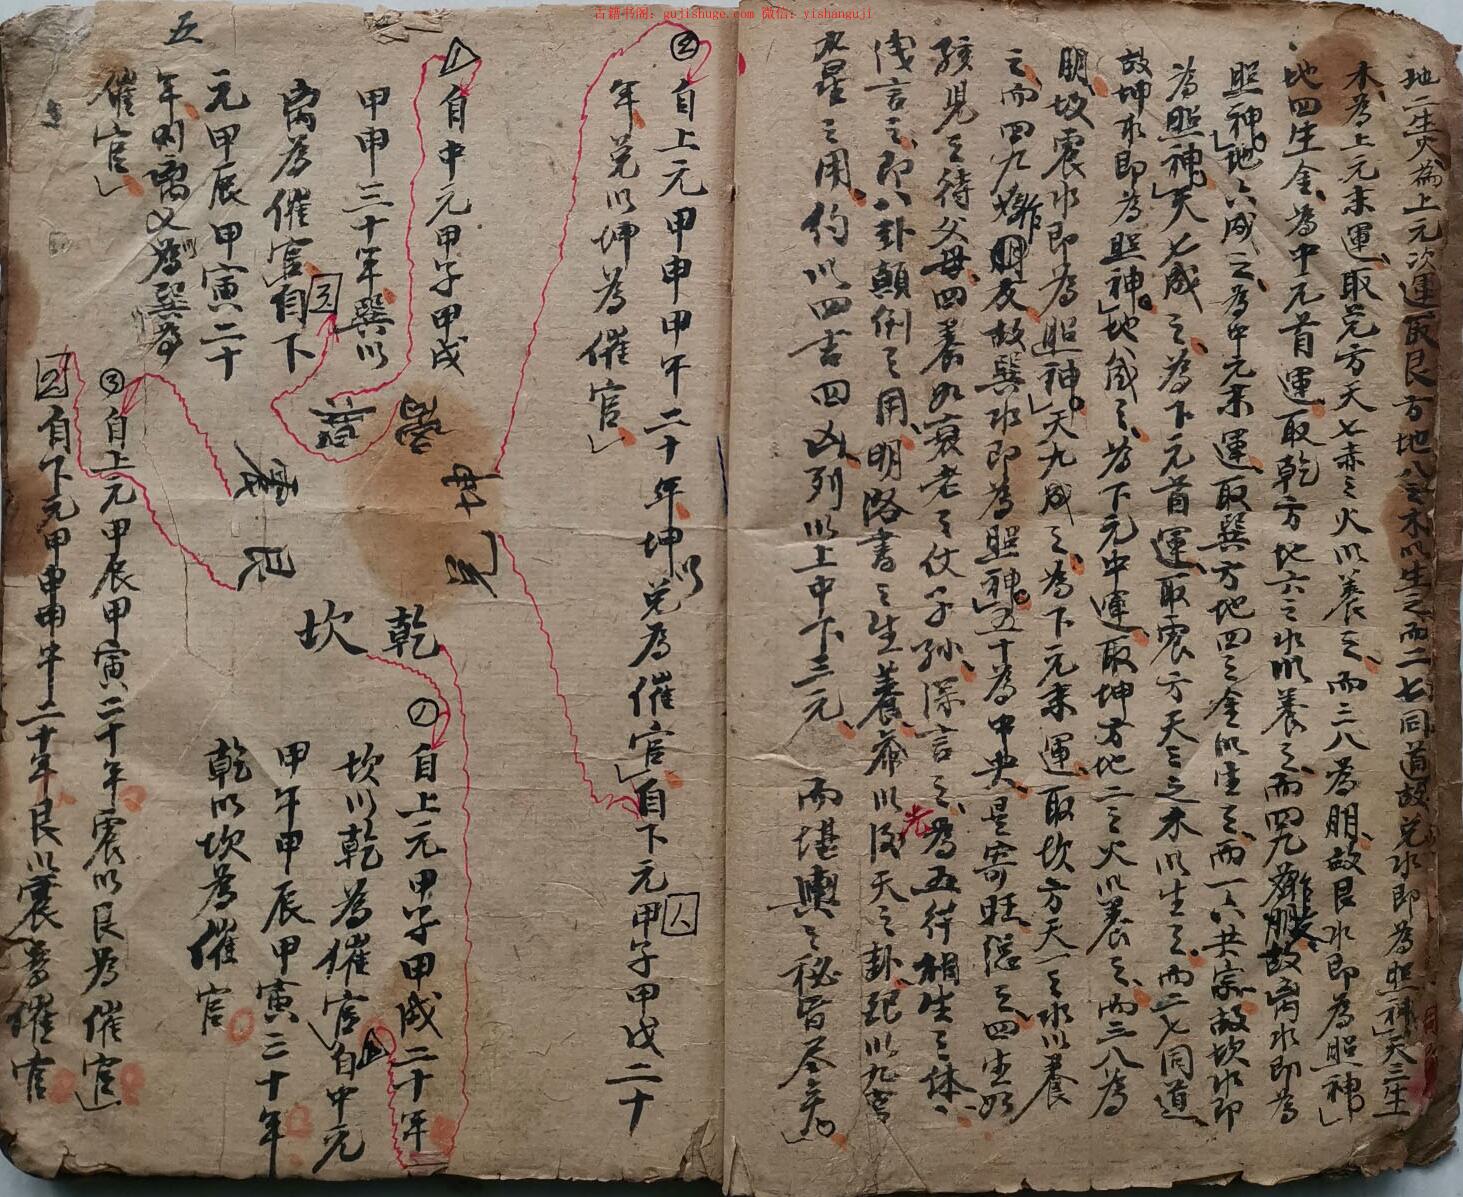 古籍书阁：gujishuge.com 微信：yishanguji
地二生火為上元次運取艮方地八之木以生之而二七同道故兌水即為照神」天三生
木為上元末運取兌方天七赤之火以養之而三八為朋故艮水即為照神」
地四生金為中元首運取乾方地六之水以養之而四九為朋故离水即為
照神」地六成之為中元末運取巽方地四之金以生之而一六共宗故坎水即
為照神」天七成之為下元首運取震方天三之木以生之而二七同道
故坤水即為照神」地八成之為下元中運取坤方地二之火以養之而三八為
朋故震水即為照神」天九成之為下元末運取坎方天一之水以養
之而四九為朋友故巽水即為照神」五十為中央是寄旺隱之四生如
孩兒之待父母四養如衰老之仗子孫深言之為五行相生之体
淺言之即八卦顛倒之用明洛書之生養并以後天之卦配以九宮
九星之用約以四吉四凶列以上中下三元而堪輿之秘旨盡矣」
先
② 自上元甲申甲午二十年坤以兌為催官」自下元甲子甲戌二十
年兌以坤為催官」
1 自中元甲子甲戌
甲申三十年巽以
离為催官」自下
元甲辰甲寅二十
年則离又為巽為
催官」
五
离
坤
兌
乾
坎
艮
震
① 自上元甲子甲戌二十年
坎以乾為催官」自中元
甲午甲辰甲寅三十年
乾以坎為催官
③ 自上元甲辰甲寅二十年震以艮為催官」
2 自下元甲申甲午二十年艮以震為催官